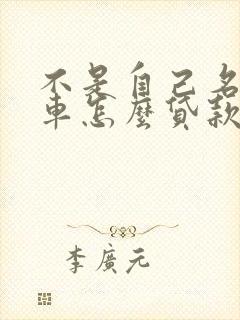 不是自己名
車怎麼貸款
李廣元